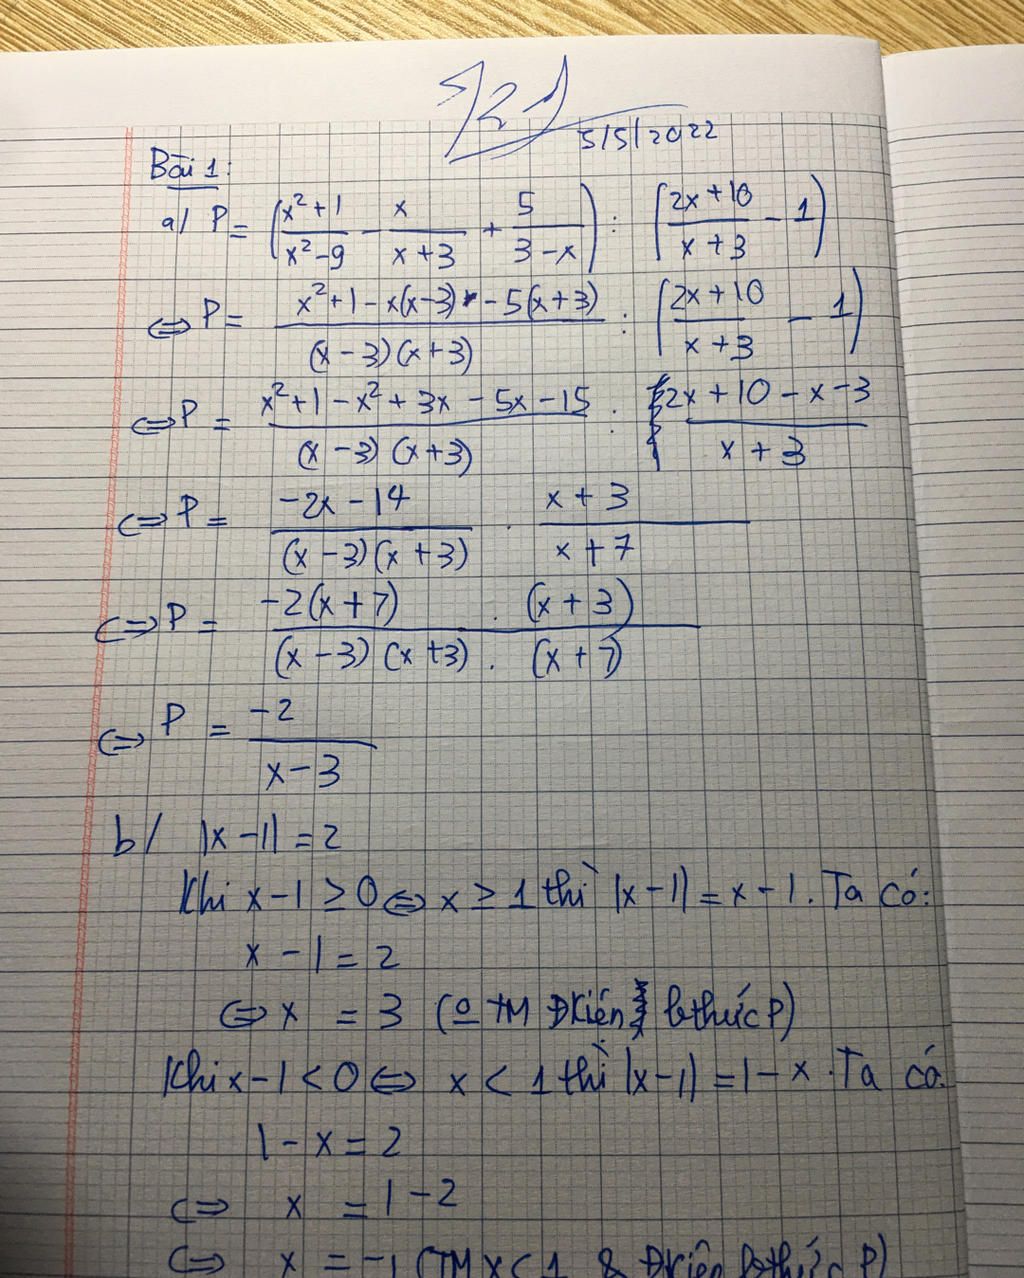 5/5/2022
Bài 1:
a/ P = (x²+1 / x²-9 - x / x+3 + 5 / 3-x) : (2x+10 / x+3 - 1)
⇔ P = x²+1-x(x-3) - 5(x+3) / (x-3)(x+3) : (2x+10 / x+3 - 1)
⇔ P = x²+1-x²+3x-5x-15 / (x-3)(x+3) : 2x+10-x-3 / x+3
⇔ P = -2x-14 / (x-3)(x+3) . x+3 / x+7
⇔ P = -2(x+7) . (x+3) / (x-3)(x+3) . (x+7)
⇔ P = -2 / x-3
b/ |x-1| = 2
Khi x-1 ≥ 0 ⇔ x ≥ 1 thì |x-1| = x-1. Ta có:
x - 1 = 2
⇔ x = 3 (o TM ĐKiện bthức P)
Khi x-1 < 0 ⇔ x < 1 thì |x-1| = 1-x. Ta có
1 - x = 2
⇔ x = 1-2
⇔ x = -1 (TM x<1 & Đkiện bthức P)